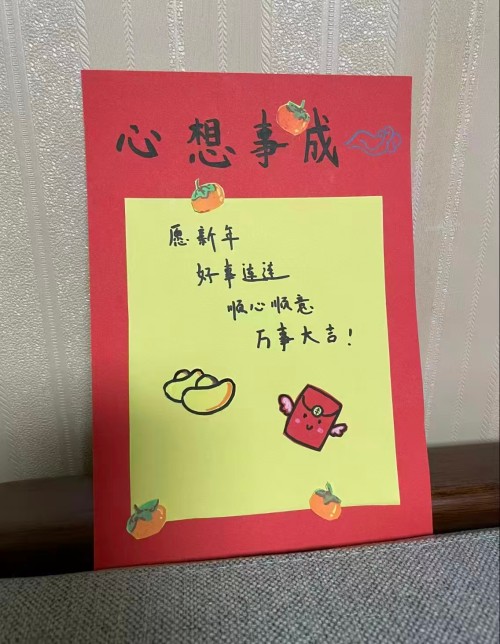 心想事成
愿新年
好事连连
顺心顺意
万事大吉！